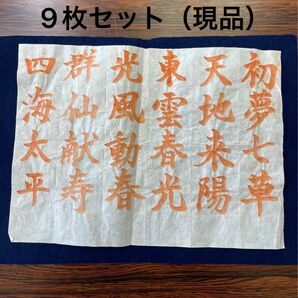 9枚セット（現品）
初夢七草
天地来陽
東雲春光
光風動春
群仙献寿
四海太平